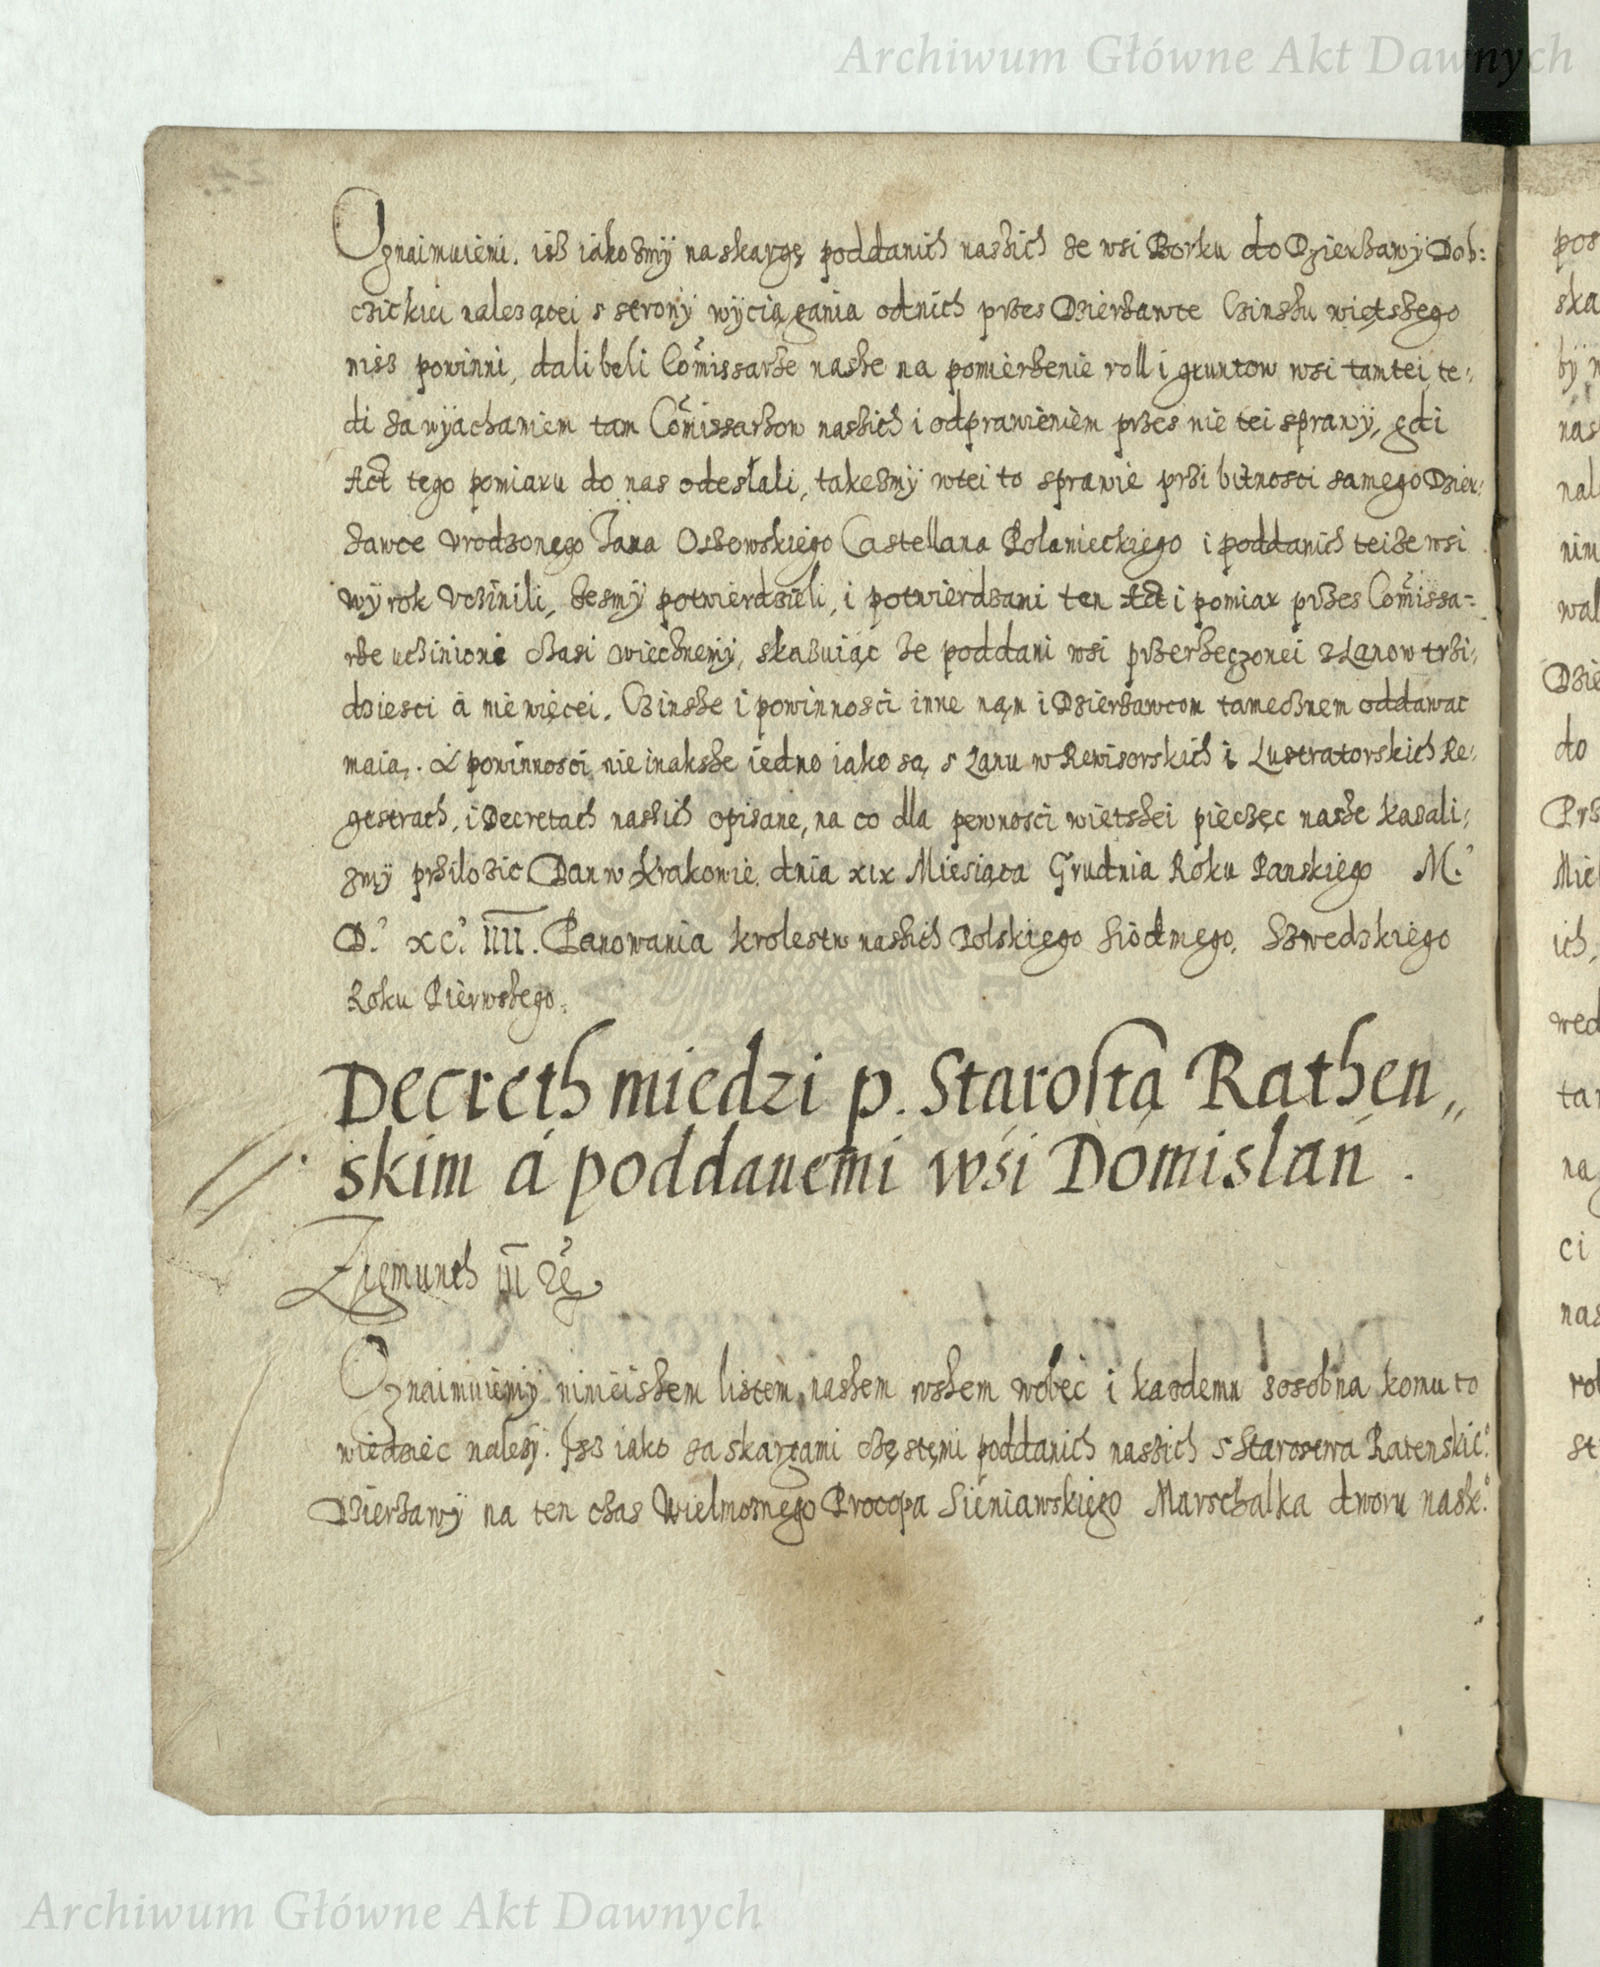 Archiwum Główne Akt Dawnych
Oznaimuiemi. isz iakoszmÿ na skargę poddanich naszich ze wsi Borku do DzierzawÿDob:
czickiei należącei s stronÿ wÿciągania odnich przes Dzierzawce Czinszu więtszego
nisz powinni, dali beli Com̃issarze nasze na pomierzenie roll i gruntow wsi tamtei te:
di za wÿachaniem tam Com̃issarzow naszich i odprawieniem przes nie tei sprawÿ, gdi
Act tego pomiaru do nas odesłali, takeszmÿ wtei to sprawie przi bitnosci samego Dzier:
zawce Vrodzonego Jana Ossowskiego Castellana Polanieckiego i poddanich teize wsi
wÿrok Vczinili, zesmÿ potwierdzieli, i potwierdzami ten Act i pomiar przes Com̃issa=
rze uczinione czasi wiecznemÿ, skazuiąc ze poddani wsi przerzeczonei z Lanow trzi:
dziesci á nie więcei. Czinsze i powinnosci inne nąm i Dzierzawcom tamecznem oddawac
maią. A powinnosci nie inaksze iedno iako są s Lanu w Rewisorskich i Lustratorskich Re:
gestrach, i Decretach naszich opisane, na co dla pewnosci wietszei pieczęc nasze kazali:
szmÿ przilozic Dan w Krakowie. dnia xix Miesiąca Grudnia Roku Panskiego M.
D. xc. IIII. Panowania krolestw naszich Polskiego Siodmego. Szwedzkiego
Roku Pierwszego.
Decreth miedzi p. Starostą Rathen„
skim á poddanemi wśi Domislan .
Zigmunth III &c
Oznaimuiemÿ ninieiszem listem naszem wszem wobec i kazdemu zosobna komu to
wiedziec nalezÿ. Isz iako za skargami częstęmi poddanich naszich s Starostwa Ratenskie°
Dzierzawÿ na ten czas Wielmoznego Procopa Sieniawskiego Marschalka dworu nasze°
Archiwum Główne Akt Dawnych